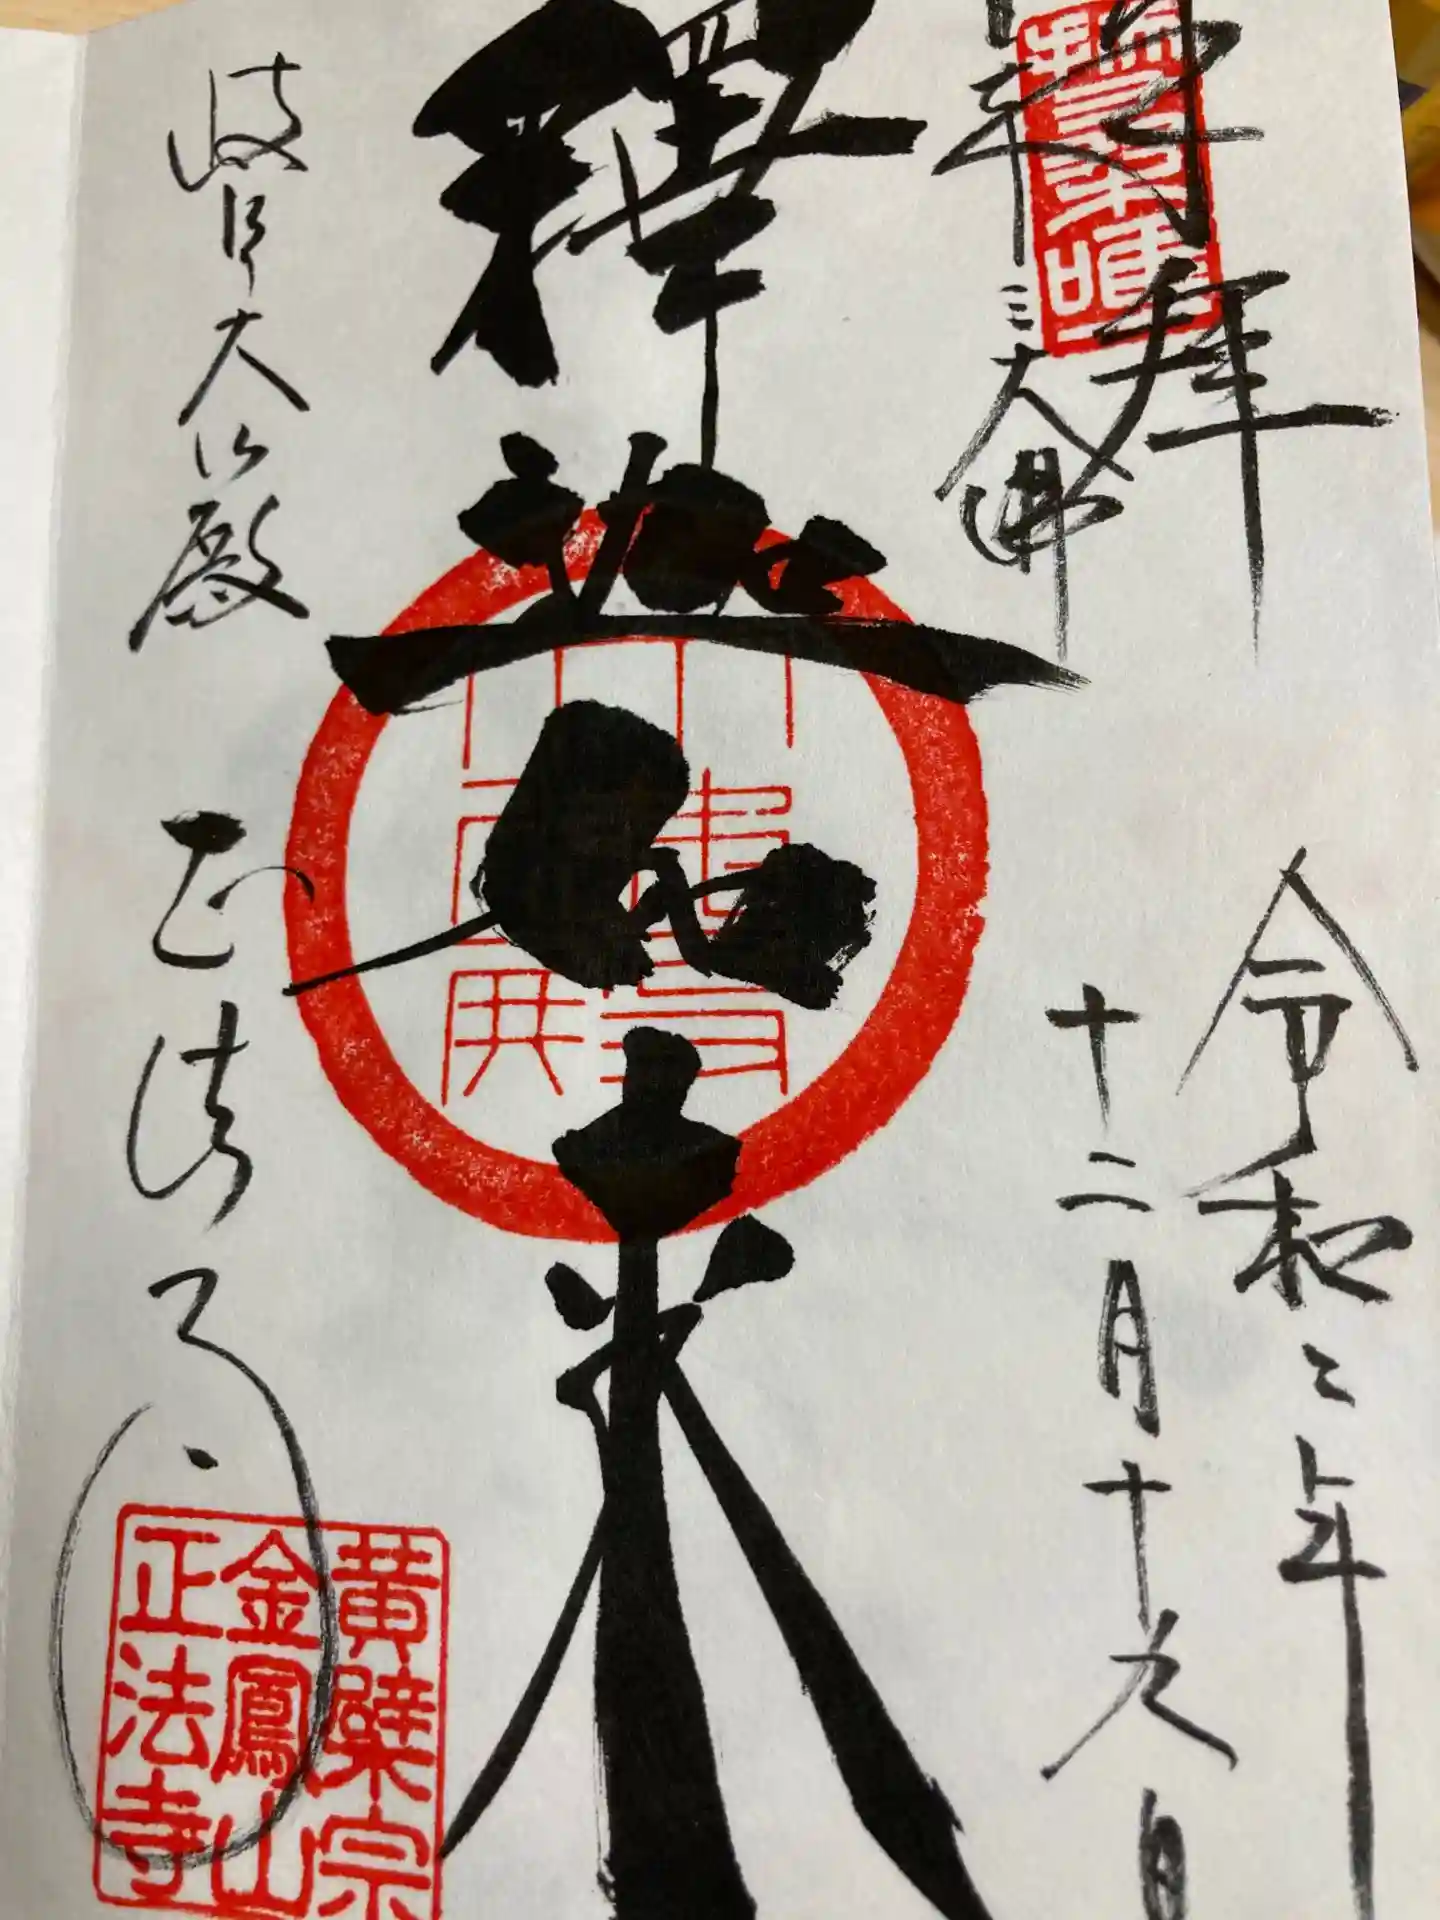 奉拝
日本三大佛
令和三年
十二月十九日
釋迦如来
岐阜大仏殿 正法寺
黄檗宗
金鳳山
正法寺